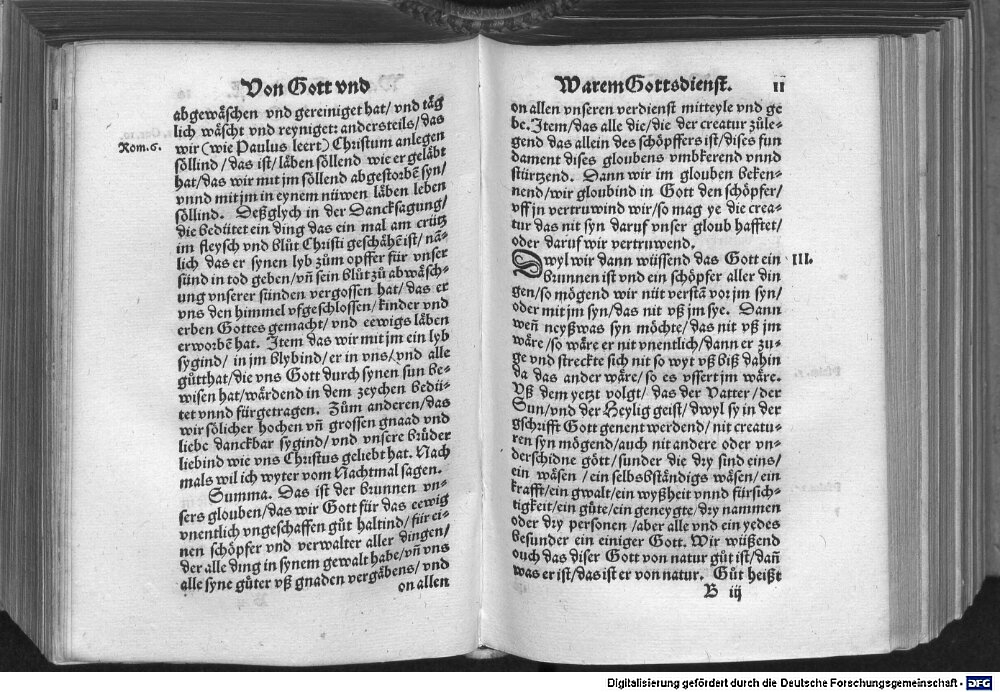 Von Gott vnd
abgewäschen vnd gereiniget hat/ vnd täg
lich wäscht vnd reyniget: andersteils/ das
Rom. 6.
wir (wie Paulus leert) Christum anlegen
söllind/ das ist/ läben söllend wie er geläbt
hat/ das wir mit jm söllend abgestorbẽ syn/
vnnd mit jm in eynem nüwen läben leben
söllind. Deßglych in der Dancksagung/
die bedütet ein ding das ein mal am crütz
im fleysch vnd blůt Christi geschähẽ ist/ nã-
lich das er synen lyb zům opffer für vnser
sünd in tod geben/ vñ sein blůt zů abwäsch-
ung vnserer sünden vergossen hat/ das er
vns den himmel vfgeschlossen/ kinder vnd
erben Gottes gemacht/ vnd eewigs läben
erworbẽ hat. Item das wir mit jm ein lyb
sygind/ in jm blybind/ er in vns/ vnd alle
gůtthat/ die vns Gott durch synen sun be-
wisen hat/ wärdend in dem zeychen bedü-
tet vnnd fürgetragen. Zům anderen/ das
wir sölicher hochen vñ grossen gnaad vnd
liebe danckbar sygind/ vnd vnsere brüder
liebind wie vns Christus geliebt hat. Nach
mals wil ich wyter vom Nachtmal sagen.
Summa. Das ist der brunnen vn-
sers glouben/ das wir Gott für das eewig
vnentlich vngeschaffen gůt haltind/ für ei-
nen schöpfer vnd verwalter aller dingen/
der alle ding in synem gewalt habe/ vñ vns
alle syne güter vß gnaden vergäbens/ vnd
on allen
Warem Gottsdienst. 11
on allen vnseren verdienst mitteyle vnd ge
be. Item/ das alle die/ die der creatur zůle-
gend das allein des schöpffers ist/ dises fun
dament dises gloubens vmbkerend vnnd
stürtzend. Dann wir im glouben beken-
nend/ wir gloubind in Gott den schöpfer/
vff jn vertruwind wir/ so mag ye die crea-
tur das nit syn daruf vnser gloub hafftet/
oder daruf wir vertruwend.
Dwyl wir dann wüssend das Gott ein
III.
brunnen ist vnd ein schöpfer aller din
gen/ so mögend wir nüt verstã vor jm syn/
oder mit jm syn/ das nit vß jm sye. Dann
weñ neyßwas syn möchte/ das nit vß jm
wäre/ so wäre er nit vnentlich/ dann er zu-
ge vnd streckte sich nit so wyt vß biß dahin
da das ander wäre/ so es vssert jm wäre.
Vß dem yetzt volgt/ das der Vatter/ der
Sun/ vnd der Heylig geist/ dwyl sy in der
gschrifft Gott genent werdend/ nit creatu-
ren syn mögend/ auch nit andere oder vn-
derschidne gött/ sunder die dry sind eins/
ein wäsen/ ein selbsbständigs wäsen/ ein
krafft/ ein gwalt/ ein wyßheit vnnd fürsich-
tigkeit/ ein güte/ ein geneygte/ dry nammen
oder dry personen/ aber alle vnd ein yedes
besunder ein einiger Gott. Wir wüßend
ouch das diser Gott von natur gůt ist/ dañ
was er ist/ das ist er von natur. Gůt heißt
B iij
Digitalisierung gefördert durch die Deutsche Forschungsgemeinschaft - DFG